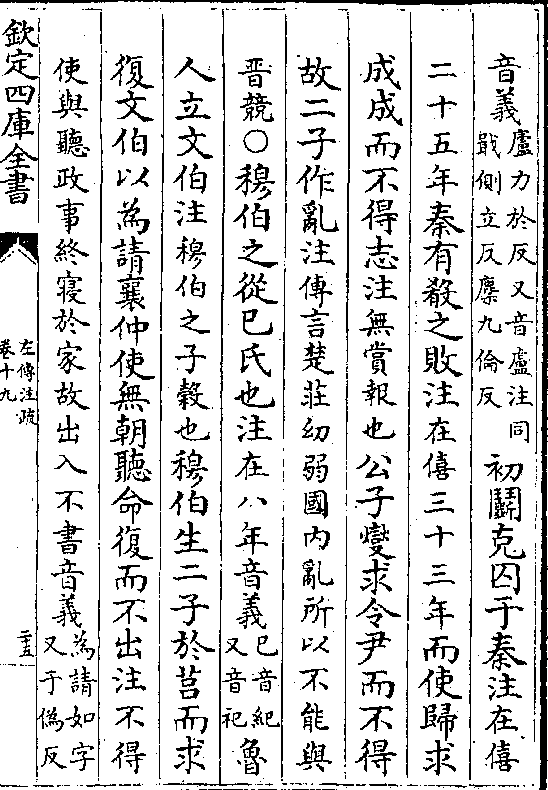 音義廬力於反又音盧注同戢側立反麇九倫反　初鬭克囚于秦注在僖
二十五年秦有殽之敗注在僖三十三年而使歸求
成成而不得志注無賞報也公子燮求令尹而不得
故二子作亂注傳言楚莊幼弱國内亂所以不能與
晋競○穆伯之從巳氏也注在八年音義巳音紀又音祀魯
人立文伯注穆伯之子榖也穆伯生二子於莒而求
復文伯以為請襄仲使無朝聽命復而不出注不得
使與聽政事終寝於家故出入不書音義為請如字又于偽反
欽定四庫全書
左傳注疏
卷十九
二十五